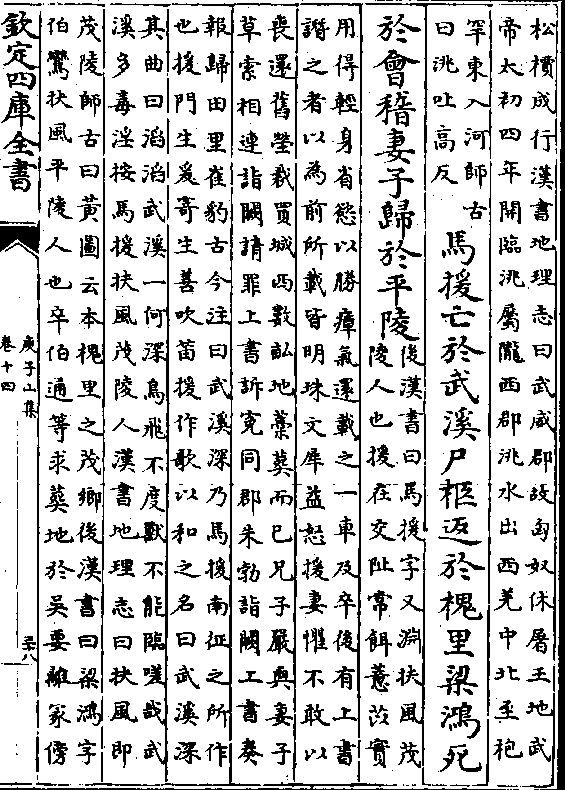 松櫝成行漢書地理志曰武威郡故匈奴休屠王地武
帝太初四年開臨洮屬隴西郡洮水出西羌中北至枹
罕東入河師古
曰洮吐高反
馬援亡於武溪尸柩返於槐里梁鴻死
於會稽妻子歸於平陵
後漢書曰馬援字文淵扶風茂
陵人也援在交阯常餌薏苡實
用得輕身省慾以勝瘴氣還載之一車及卒後有上書
譖之者以為前所載皆明珠文犀益怒援妻懼不敢以
喪還舊塋裁買城西數畝地藁葬而已兄子嚴與妻子
草索相連詣闕請罪上書訴寃同郡朱勃詣闕上書奏
報歸田里崔豹古今注曰武溪深乃馬援南征之所作
也援門生爰寄生善吹笛援作歌以和之名曰武溪深
其曲曰滔滔武溪一何深鳥飛不度獸不能臨嗟哉武
溪多毒淫按馬援扶風茂陵人漢書地理志曰扶風即
茂陵師古曰黃圖云本槐里之茂鄉後漢書曰梁鴻字
伯鸞扶風平陵人也卒伯通等求葬地於吳要離冢傍
欽定四庫全書
庾子山集
卷十四
三十八